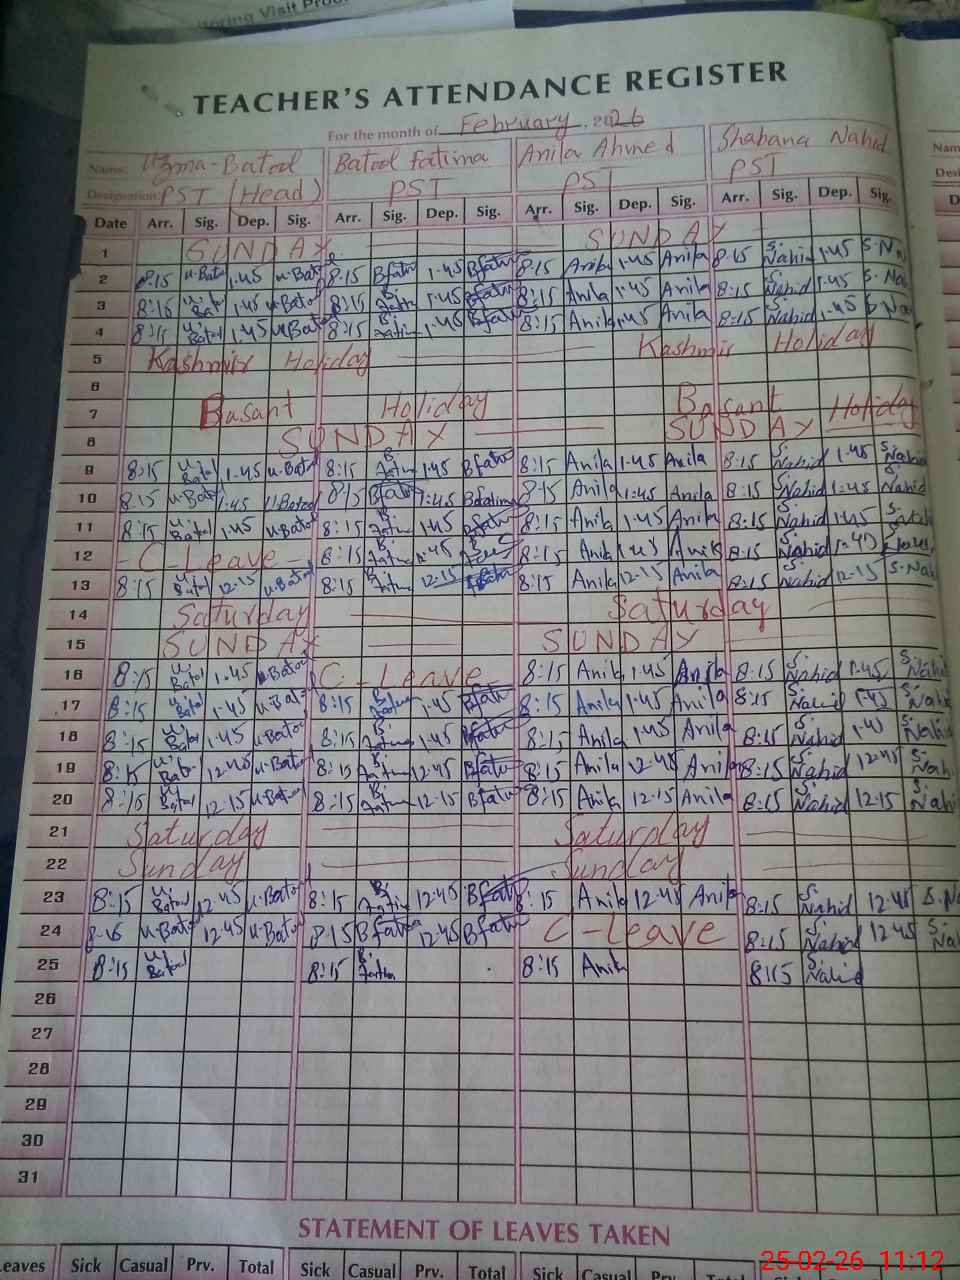 toring Visit Pro
TEACHER'S ATTENDANCE REGISTER
For the month of February, 2026
Name: Uzma-Batool Batool Fatima Anila Ahmed Shabana Nahid
Designation: PST (Head) PST PST PST
Date Arr. Sig. Dep. Sig. Arr. Sig. Dep. Sig. Arr. Sig. Dep. Sig. Arr. Sig. Dep. Sig.
1 SUNDAY SUNDAY
2 8:15 U-Batol 1.45 U-Batol 8:15 Bfatir 1.45 Bfatir 8:15 Anila 1.45 Anila 8:15 S. Nahid 1.45 S. Na
3 8:15 1.45 U-Batol 8:15 1.45 Bfatir 8:15 Anila 1.45 Anila 8:15 S. Nahid 1.45 S. Na
4 8:15 1.45 U-Batol 8:15 1.45 Bfatir 8:15 Anila 1.45 Anila 8:15 S. Nahid 1.45 S. Na
5 Kashmir Holiday Kashmir Holiday
6
7 Basant Holiday Basant Holiday
8 SUNDAY SUNDAY
9 8:15 1.45 U-Batol 8:15 1.45 Bfatir 8:15 Anila 1.45 Anila 8:15 S. Nahid 1.45 S. Nahid
10 8:15 U-Batol 1:45 U-Batool 8:15 Bfatir 1:45 Bfatima 8:15 Anila 1:45 Anila 8:15 S. Nahid 1:45 S. Nahid
11 8:15 1.45 U-Batol 8:15 1.45 Bfatir 8:15 Anila 1.45 Anila 8:15 S. Nahid 1.45 S. Nahi
12 C-Leave 8:15 1.45 8:15 Anila 1.45 Anila 8:15 S. Nahid 1.45
13 8:15 12-15 U-Batol 8:15 12-15 8:15 Anila 12-15 Anila 8:15 S. Nahid 12-15 S. Nah
14 Saturday Saturday
15 SUNDAY SUNDAY
16 8:15 U. Batol 1.45 U-Batol C-Leave 8:15 Anila 1.45 Anila 8:15 S. Nahid 1.45 S. Nahid
17 8:15 U. Batol 1.45 U-Batol 8:15 1.45 Bfatir 8:15 Anila 1.45 Anila 8:15 S. Nahid 1.45 S. Nahi
18 8:15 U. Batol 1.45 U-Batol 8:15 1.45 Bfatir 8:15 Anila 1.45 Anila 8:15 S. Nahid 1.45 S. Nahid
19 8:15 12.45 U-Batol 8:15 12.45 Bfatir 8:15 Anila 12.45 Anila 8:15 S. Nahid 12.45 S. Nah
20 8:15 U. Batol 12-15 U-Batol 8:15 12-15 Bfatir 8:15 Anila 12-15 Anila 8:15 S. Nahid 12-15 S. Nahi
21 Saturday Saturday
22 Sunday Sunday
23 8:15 U. Batol 12.45 U-Batol 8:15 12.45 Bfatir 8:15 Anila 12.45 Anila 8:15 S. Nahid 12.45 S. Na
24 8-15 U-Batol 12.45 U-Batol 8-15 Bfatima 12.45 Bfatir C-Leave 8:15 S. Nahid 12.45 S. Nah
25 8:15 U. Batool 8:15 B. Fatima 8:15 Anila 8:15 S. Nahid
26
27
28
29
30
31
STATEMENT OF LEAVES TAKEN
Leaves Sick Casual Prv. Total Sick Casual Prv. Total Sick Casual Prv. Total Sick Casual
25-02-26 11:12